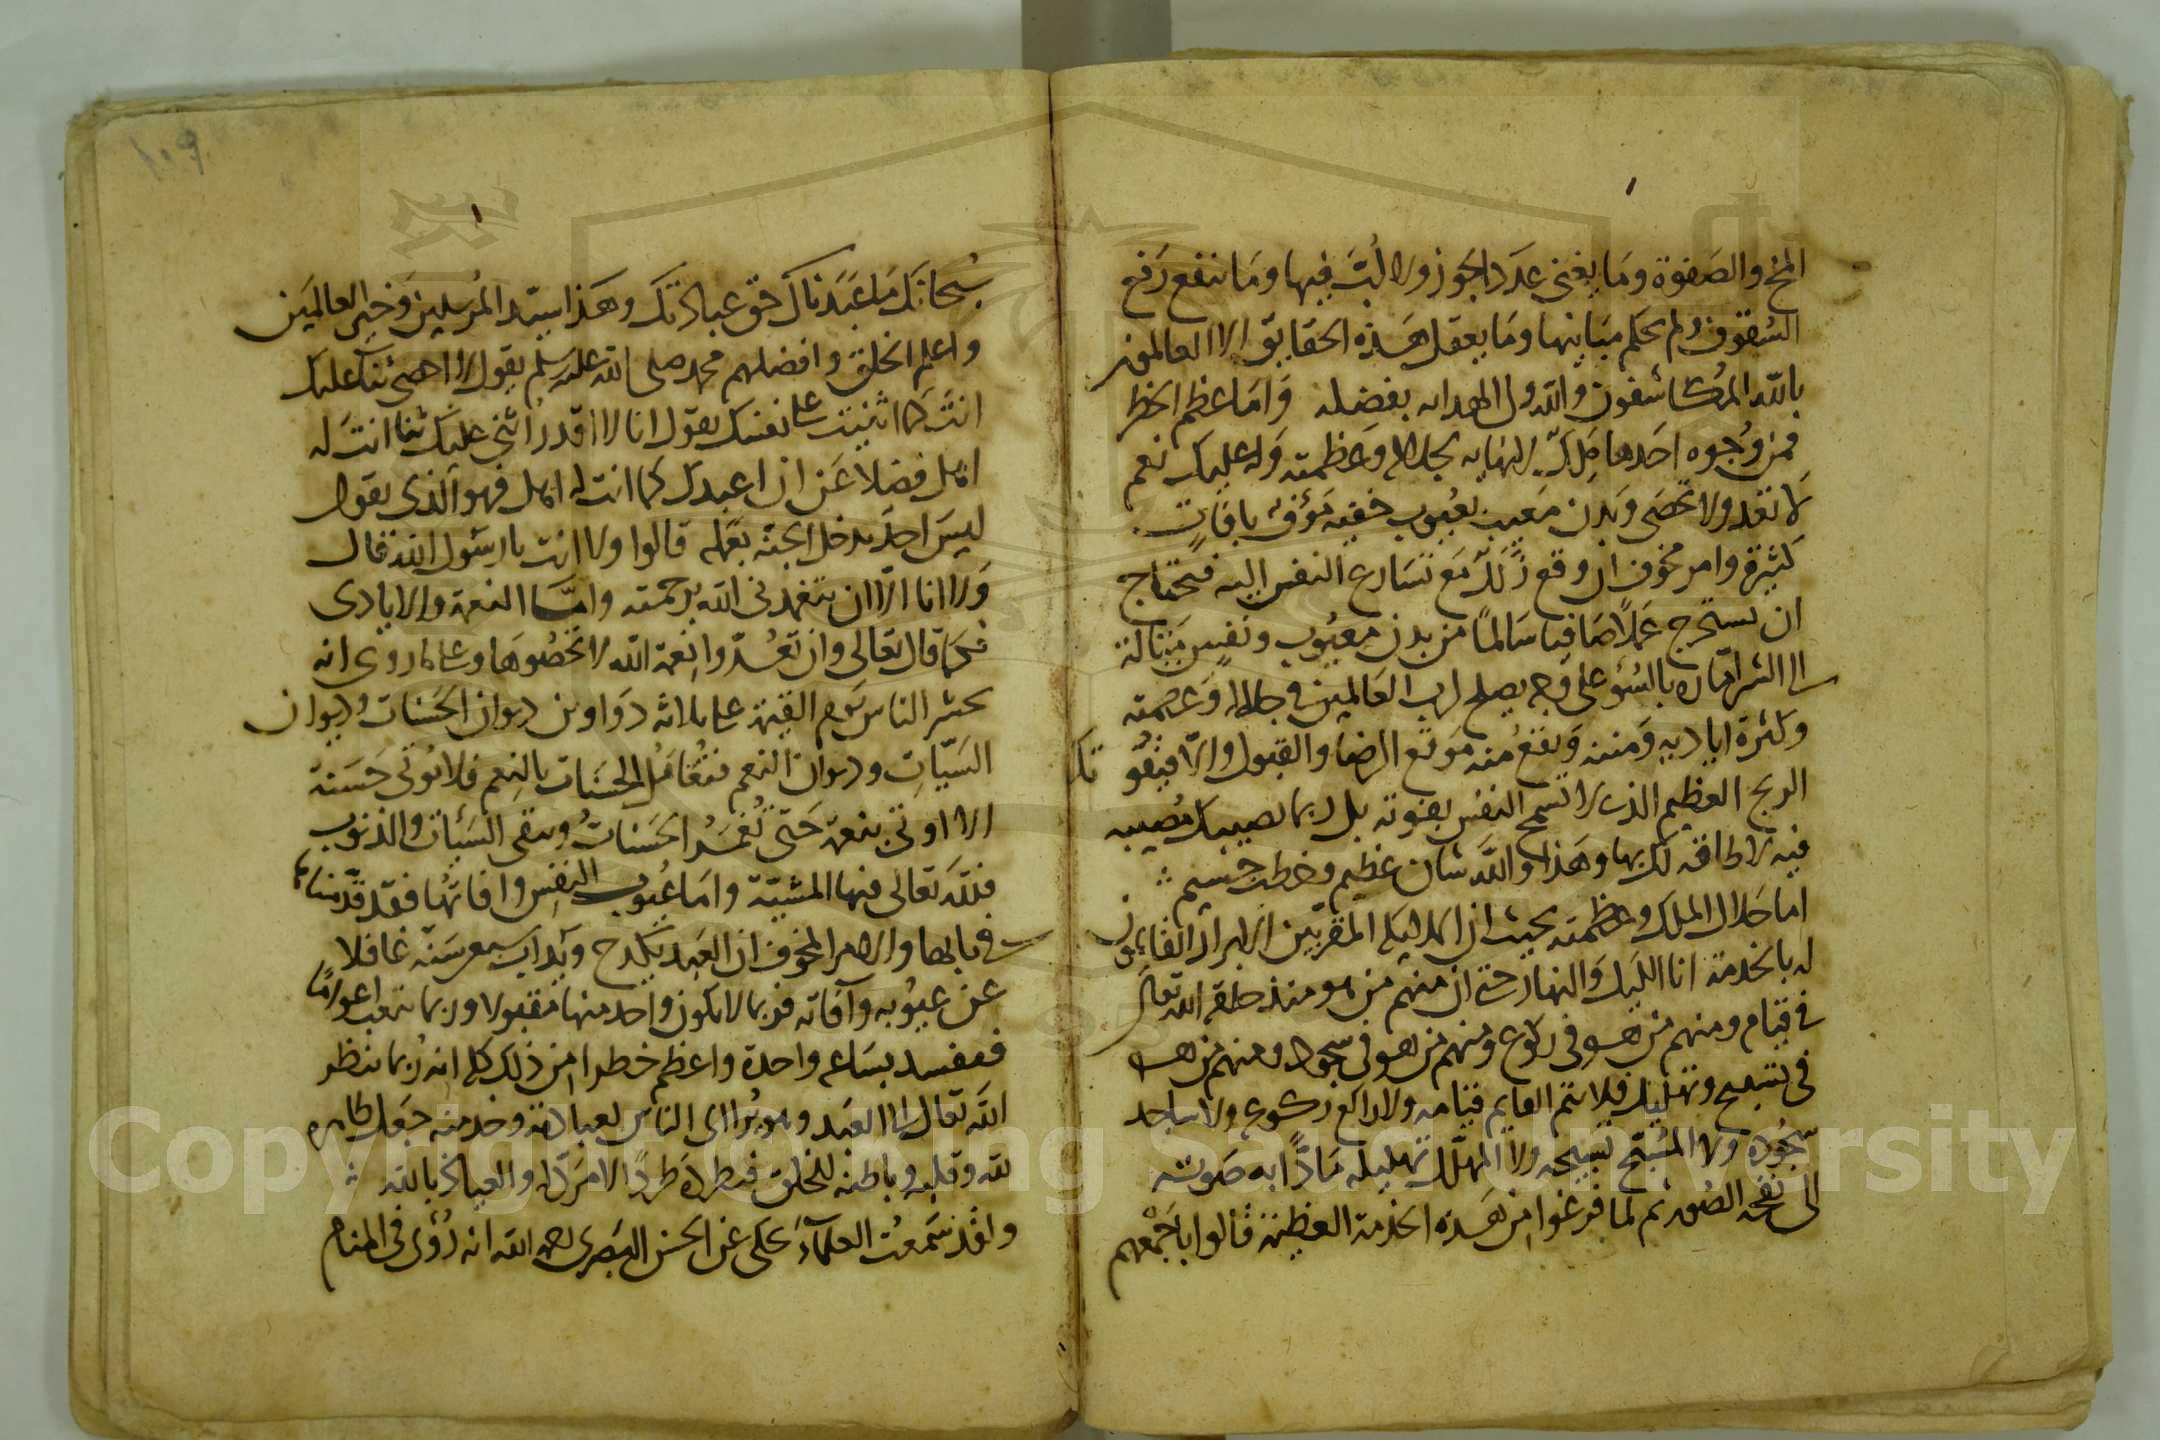 المخ والصفوة وما يغنى عدد الجوز ولا لُبَّ فيها وما ينفع رفع
السقوف ولم يحكم مبانيها وما يعقل هذه الحقايق الا العالمون
بالله المكاشفون والله ولى الهداية بفضله وَامّا عظم الخطر
فمن وُجوه احَدها مَلِكٌ لانهاية بجلاله وعظمته وَله عليك نعم
لا تعد ولا تحصَى وَبَدن مَعيب بعُيوب خفية مَؤُفٌ بافاتٍ
كثيرة وامر مخوف ان وقع زَلَلٌ مَع تسَارع النفس اليه فيحتاج
ان يستخرج عَملاً صَافيا سَالماً من بدن معيُوب ونفسٍ مَيّالة
الى الشر امّارة بالسُوء على وجه يصلح لرب العَالمين فى جلاله وَعظمته
وكثرة اياديه وَمننه وَيقعُ منه مَوقع الرضا والقبول والاّ فيفُوتك
الربح العظيم الذى لا تسمح النفس بفوته بل ربما تصيبك مُصيبه
فيه لا طاقة لك بها وهَذا وَاللهَ شان عَظيم وخطب جسيم
اما جلال الملك وعظمته بحيث ان الملايكة المقرّبين الابرار القايمون
له بالخدمة اناا الليل وَالنهار حتى ان منهم من هو منذ خلقه الله تعالى
فى قيام ومنهم من هو فى ركوع ومنهم من هو فى سجود ومنهم من هو
فى تسبيح وتهليل فلا يتم القايم قيامه ولا الراكع ركوعه ولا ساجد
سجُوده ولا المُسَبّح تسبيحه ولا المهلّل تهليله مَادًّا به صَوته
الى نفخة الصُور ثم لما فرغوا من هَذه الخدمة العَظيمَة قالوا باَجْمعهم
سُبحانَك مَا عَبَدناك حق عبادتك وهَذا سيّد المُرسَلين وَخير العالمَين
واعلم الخلق وافضلهم محمد صلى الله عليه وسلم يقول لا احصى ثنا عليك
انتَ كما اثنيت على نفسك يقول انا لا اقدر اُثنى عليك ثنا انتَ له
اهل فضلاً عَن ان اعبدك كما انت له اهل فهو الذى يقول
ليس احد يدخل الجنّة بعمله قالوا ولا انت يا رسُول الله قال
وَلا انا الا ان يتغمدنى الله برحمته وامّا النعمة والايادى
فكما قال تعالى وان تعُدّوا نعمة الله لا تحصُوهَا وعلى ما روى انه
يحشر الناس يَوم القيمة على ثلاثة دَواوين ديوان الحسنات وديوان
السَيّاتِ وديوان النعم فتُقابَلُ الحسنات بالنِعم فلا تؤتى حسَنة
الا اوتى بنعمة حَتى تغمُرُ الحسَناتُ وتبقى السَيئات والذنوب
فللّه تعالى فيها المشيّة وامَا عُيوب النفس وافاتها فقد قدّمنا
فى بابها والامر المخوف ان العَبد يكدح وَيَداب سبعين سَنة غافلا
عَن عيُوبه وآفاته فربما لا يكون واحد منها مقبولا وربما تعب اعوامًا
فيفسد بسَاعة واحدة واعظم خطرا من ذلك كله انه رُبما ينظر
اللّه تعالى الى العَبد وهو يُرائى الناسَ لعبادته وخدمته جعَل ظاهره
للّه وقلبه وباطنه للخلق فيطرده طَردًا لا مَردّ له والعياذ بالله
ولقد سَمعتُ العلمَآء يَحكى عَن الحسن البَصرى رحمه الله انه رُؤى فى المنام
١٠٩
Copyright © King Saud University